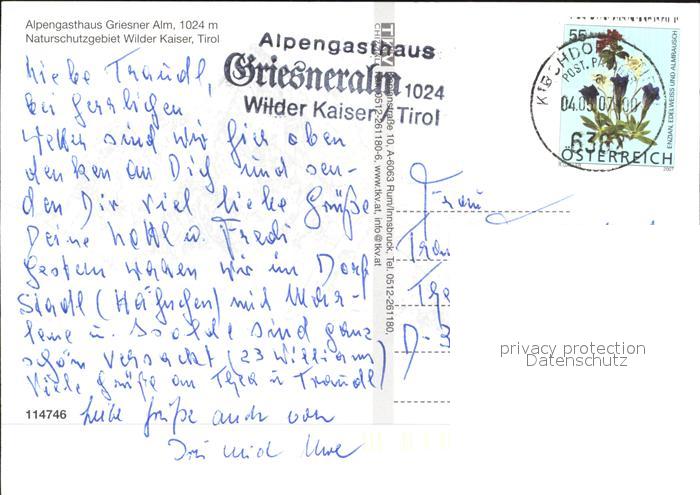 Alpengasthaus Griesner Alm, 1024 m
Naturschutzgebiet Wilder Kaiser, Tirol
Alpengasthaus
Griesneralm 1024
Wilder Kaiser, Tirol
Liebe Traudl,
bei herrlichen
Wetter sind wir hier oben
denken an Dich und sen-
den Dir viel liebe Grüße
Deine u. Fredi
Gestern waren wir im Dorf
Stadl ( ) mit
u. sind ganz
schön versackt (23 Williams)
Viele Grüße an Thea u Traudl
114746
Liebe Grüße auch von
und Uwe
A-6063 Rum/Innsbruck, Tel. 0512-261180,
0512-261180-6, www.tkv.at, info@tkv.at
Frau
D-
55
KIRCHDO
POST.PA
04.09.07
6382
ÖSTERREICH
ENZIAN, EDELWEISS UND ALMRAUSCH
2007
privacy protection
Datenschutz